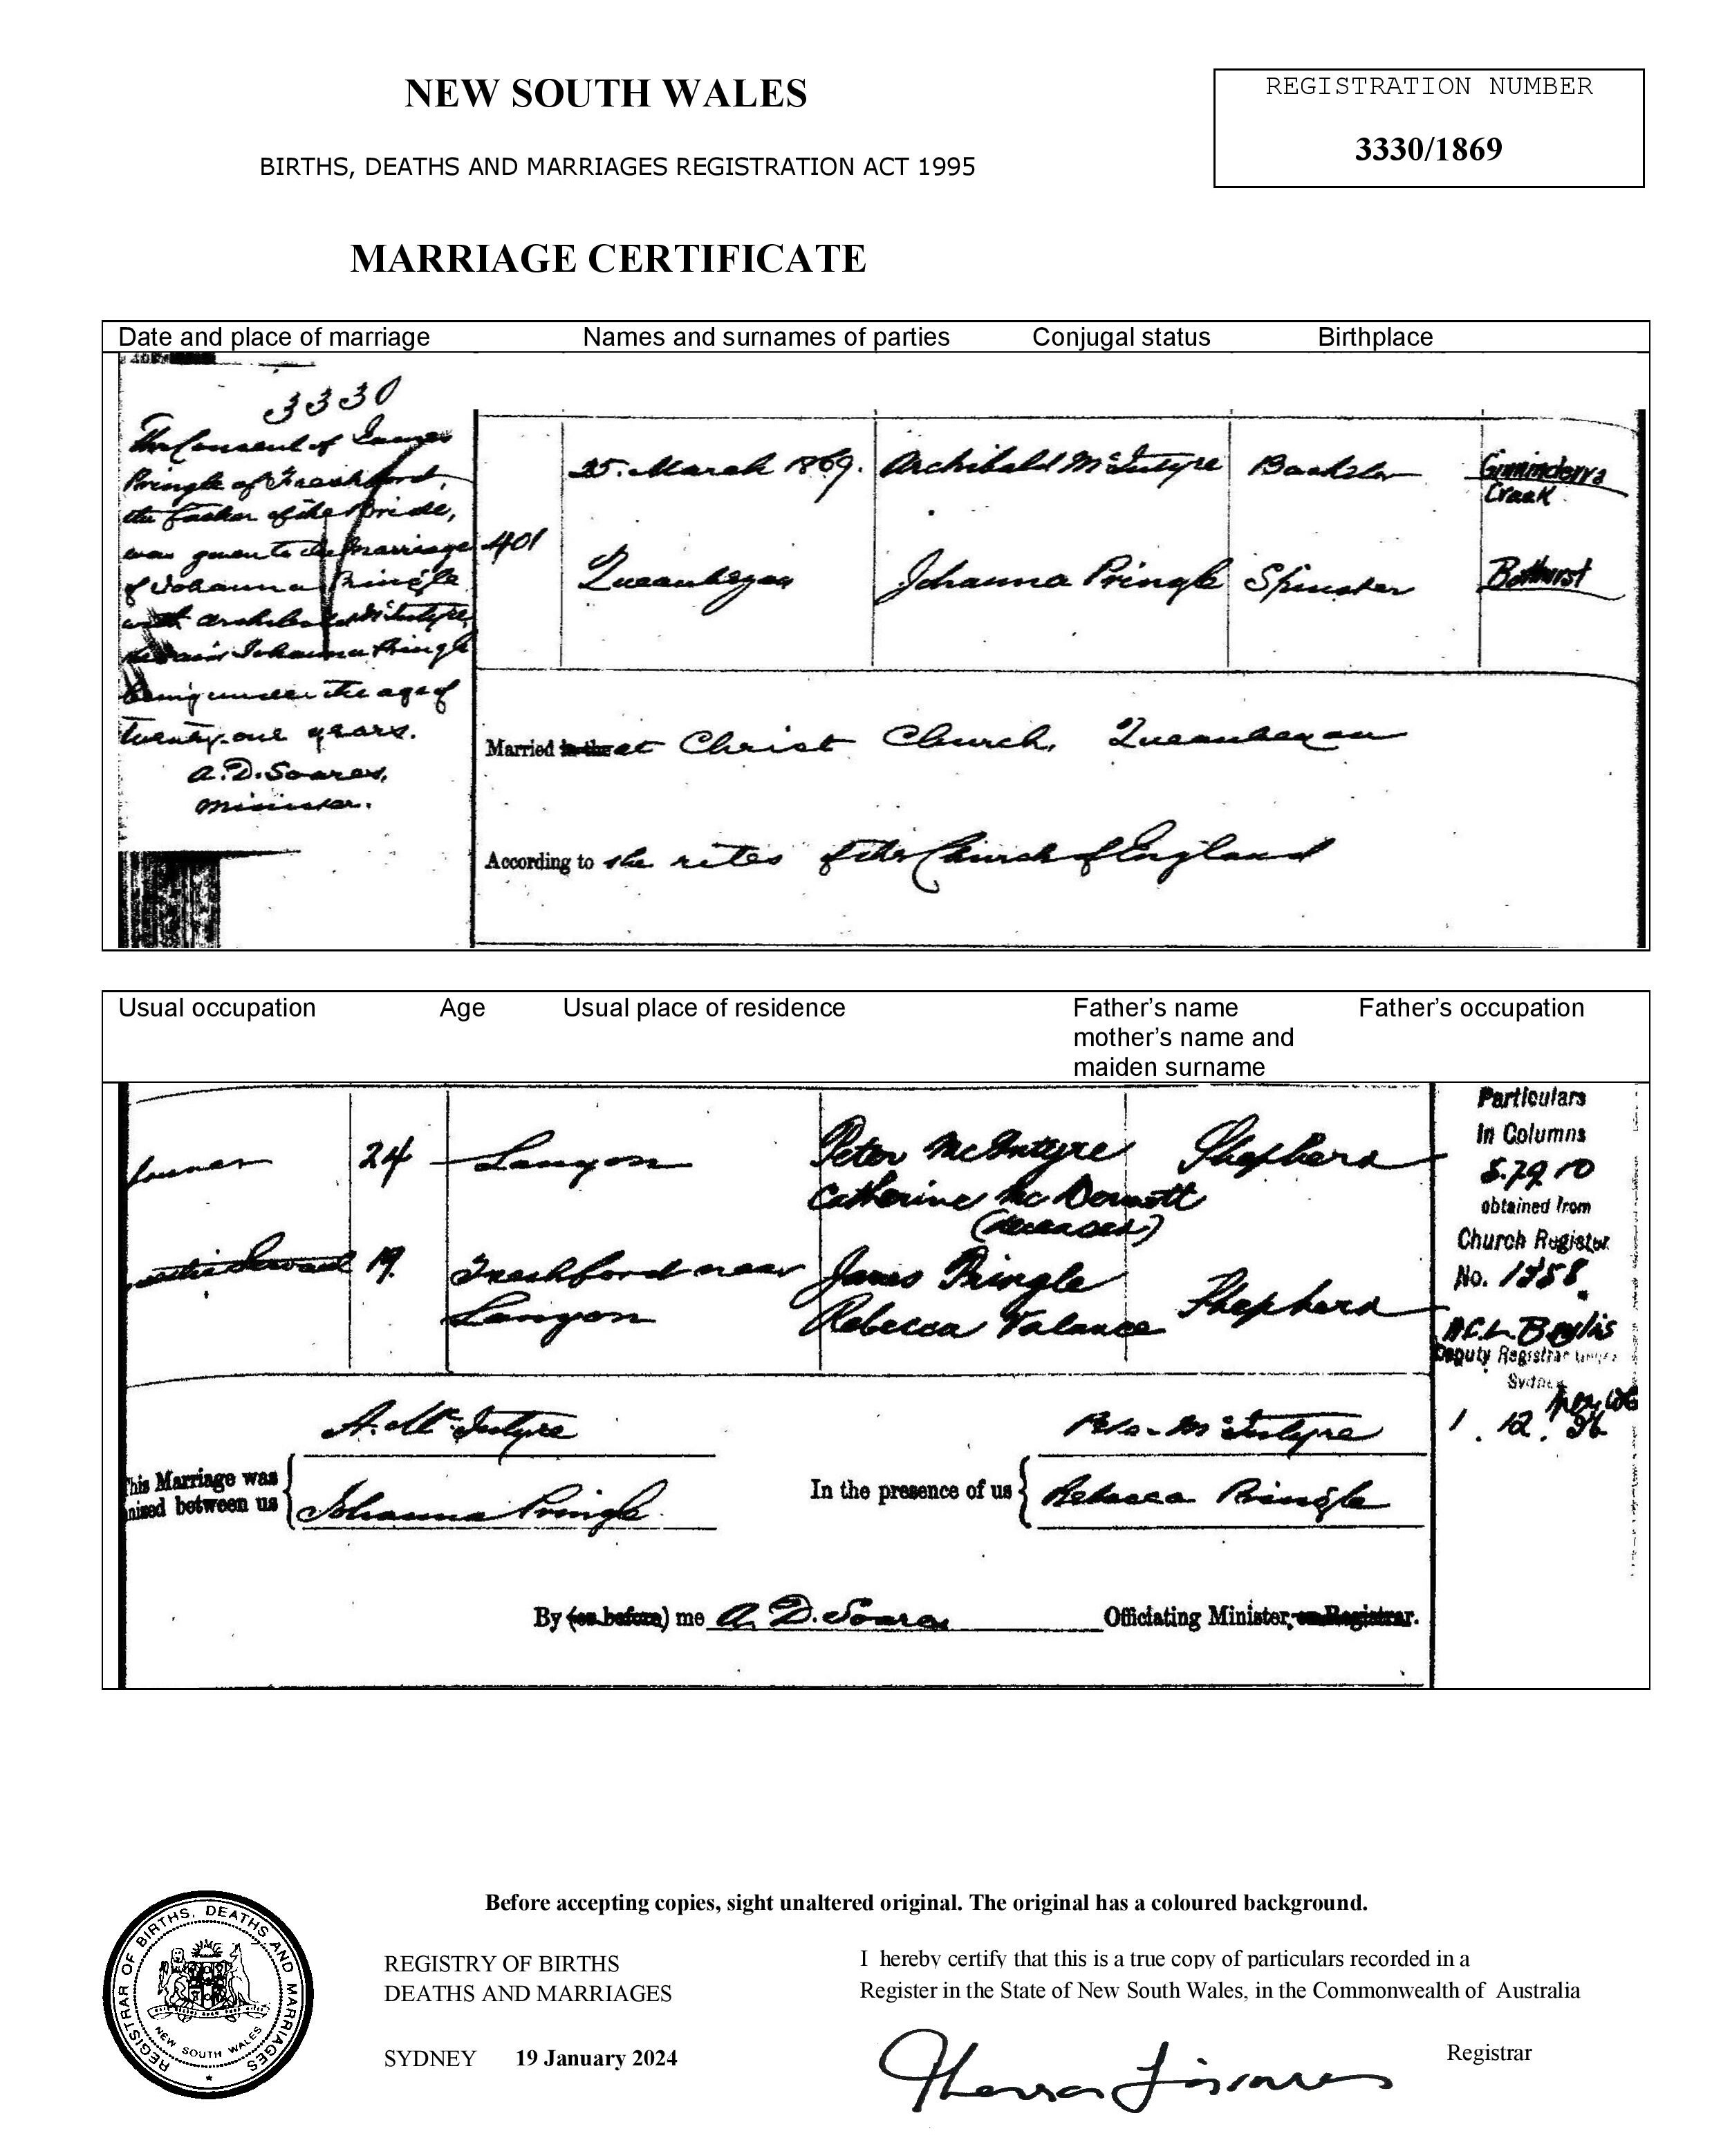 NEW SOUTH WALES
REGISTRATION NUMBER
3330/1869
BIRTHS, DEATHS AND MARRIAGES REGISTRATION ACT 1995
MARRIAGE CERTIFICATE
Date and place of marriage Names and surnames of parties Conjugal status Birthplace
3330
The Consent of James
Pringle of Freshford,
the father of the Bride,
was given to the Marriage
of Johanna Pringle
with Archibald McIntyre,
Johanna Pringle
being under the age of
twenty-one years.
A. D. Soares,
Minister.
401
25. March 1869. Archibald McIntyre Bachelor Ginninderra
Creek
Queanbeyan Johanna Pringle Spinster Bathurst
Married in the at Christ Church, Queanbeyan
According to the rites of the Church of England
Usual occupation Age Usual place of residence Father's name Father's occupation
mother's name and
maiden surname
24 Lanyon Peter McIntyre Shepherd
Catherine McDermott
(deceased)
Servant 19. Freshford near James Pringle Shepherd
Lanyon Rebecca Valance
Particulars
In Columns
obtained from
Church Register
No. 1758.
Deputy Registrar
Sydney
1. 12. 96
A. McIntyre
Johanna Pringle
his Marriage was
nized between us
In the presence of us
McIntyre
Rebecca Pringle
By (or before) me A. D. Soares Officiating Minister, or Registrar.
Before accepting copies, sight unaltered original. The original has a coloured background.
REGISTRAR OF BIRTHS, DEATHS AND MARRIAGES
NEW SOUTH WALES
REGISTRY OF BIRTHS
DEATHS AND MARRIAGES
SYDNEY 19 January 2024
I hereby certify that this is a true copy of particulars recorded in a
Register in the State of New South Wales, in the Commonwealth of Australia
Registrar